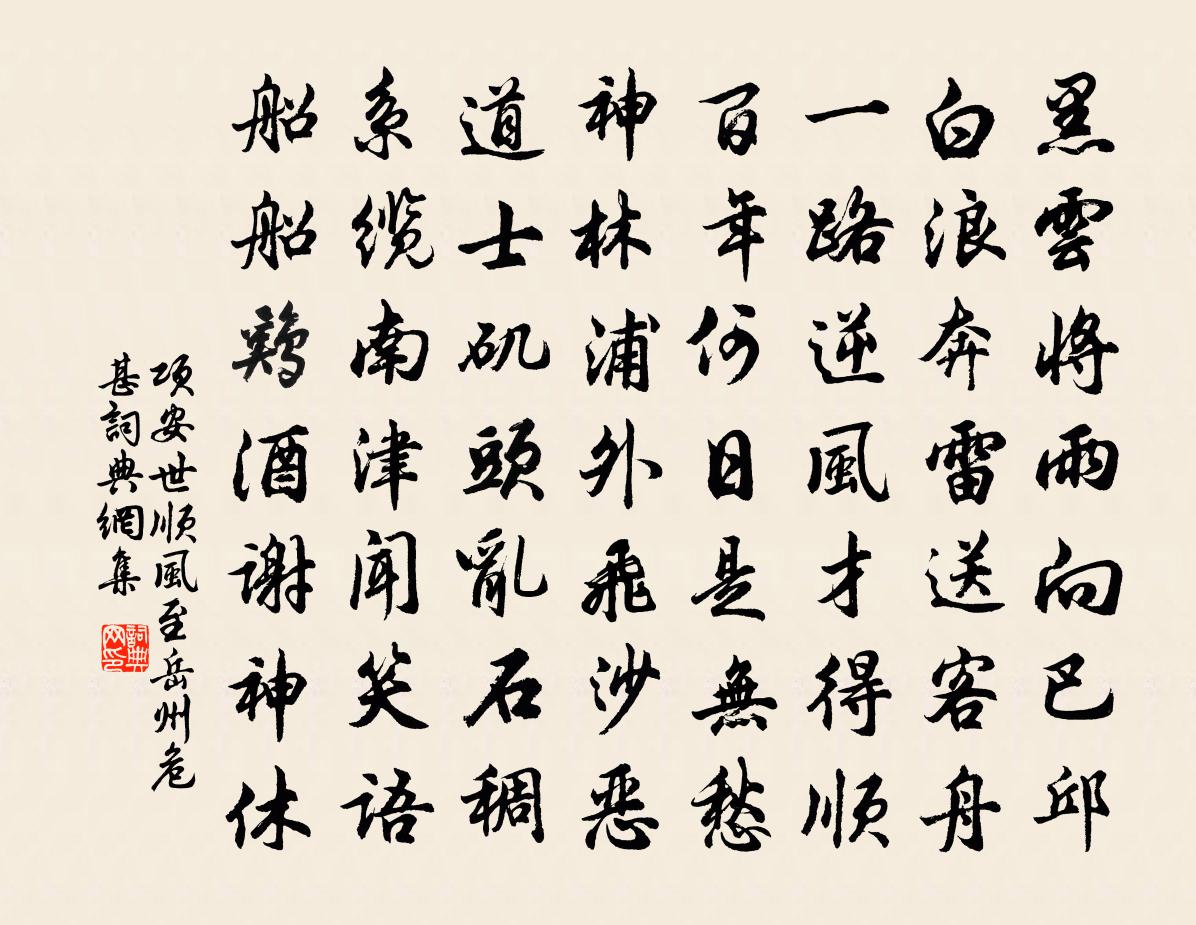 黑雲將雨向巴邱
白浪奔雷送客舟
一路逆風才得順
百年何日是無愁
神林浦外飛沙惡
道士矶頭亂石稠
系缆南津聞笑语
船船鸡酒谢神休
項安世順風至岳州危
甚詞典網集
詞典
网印